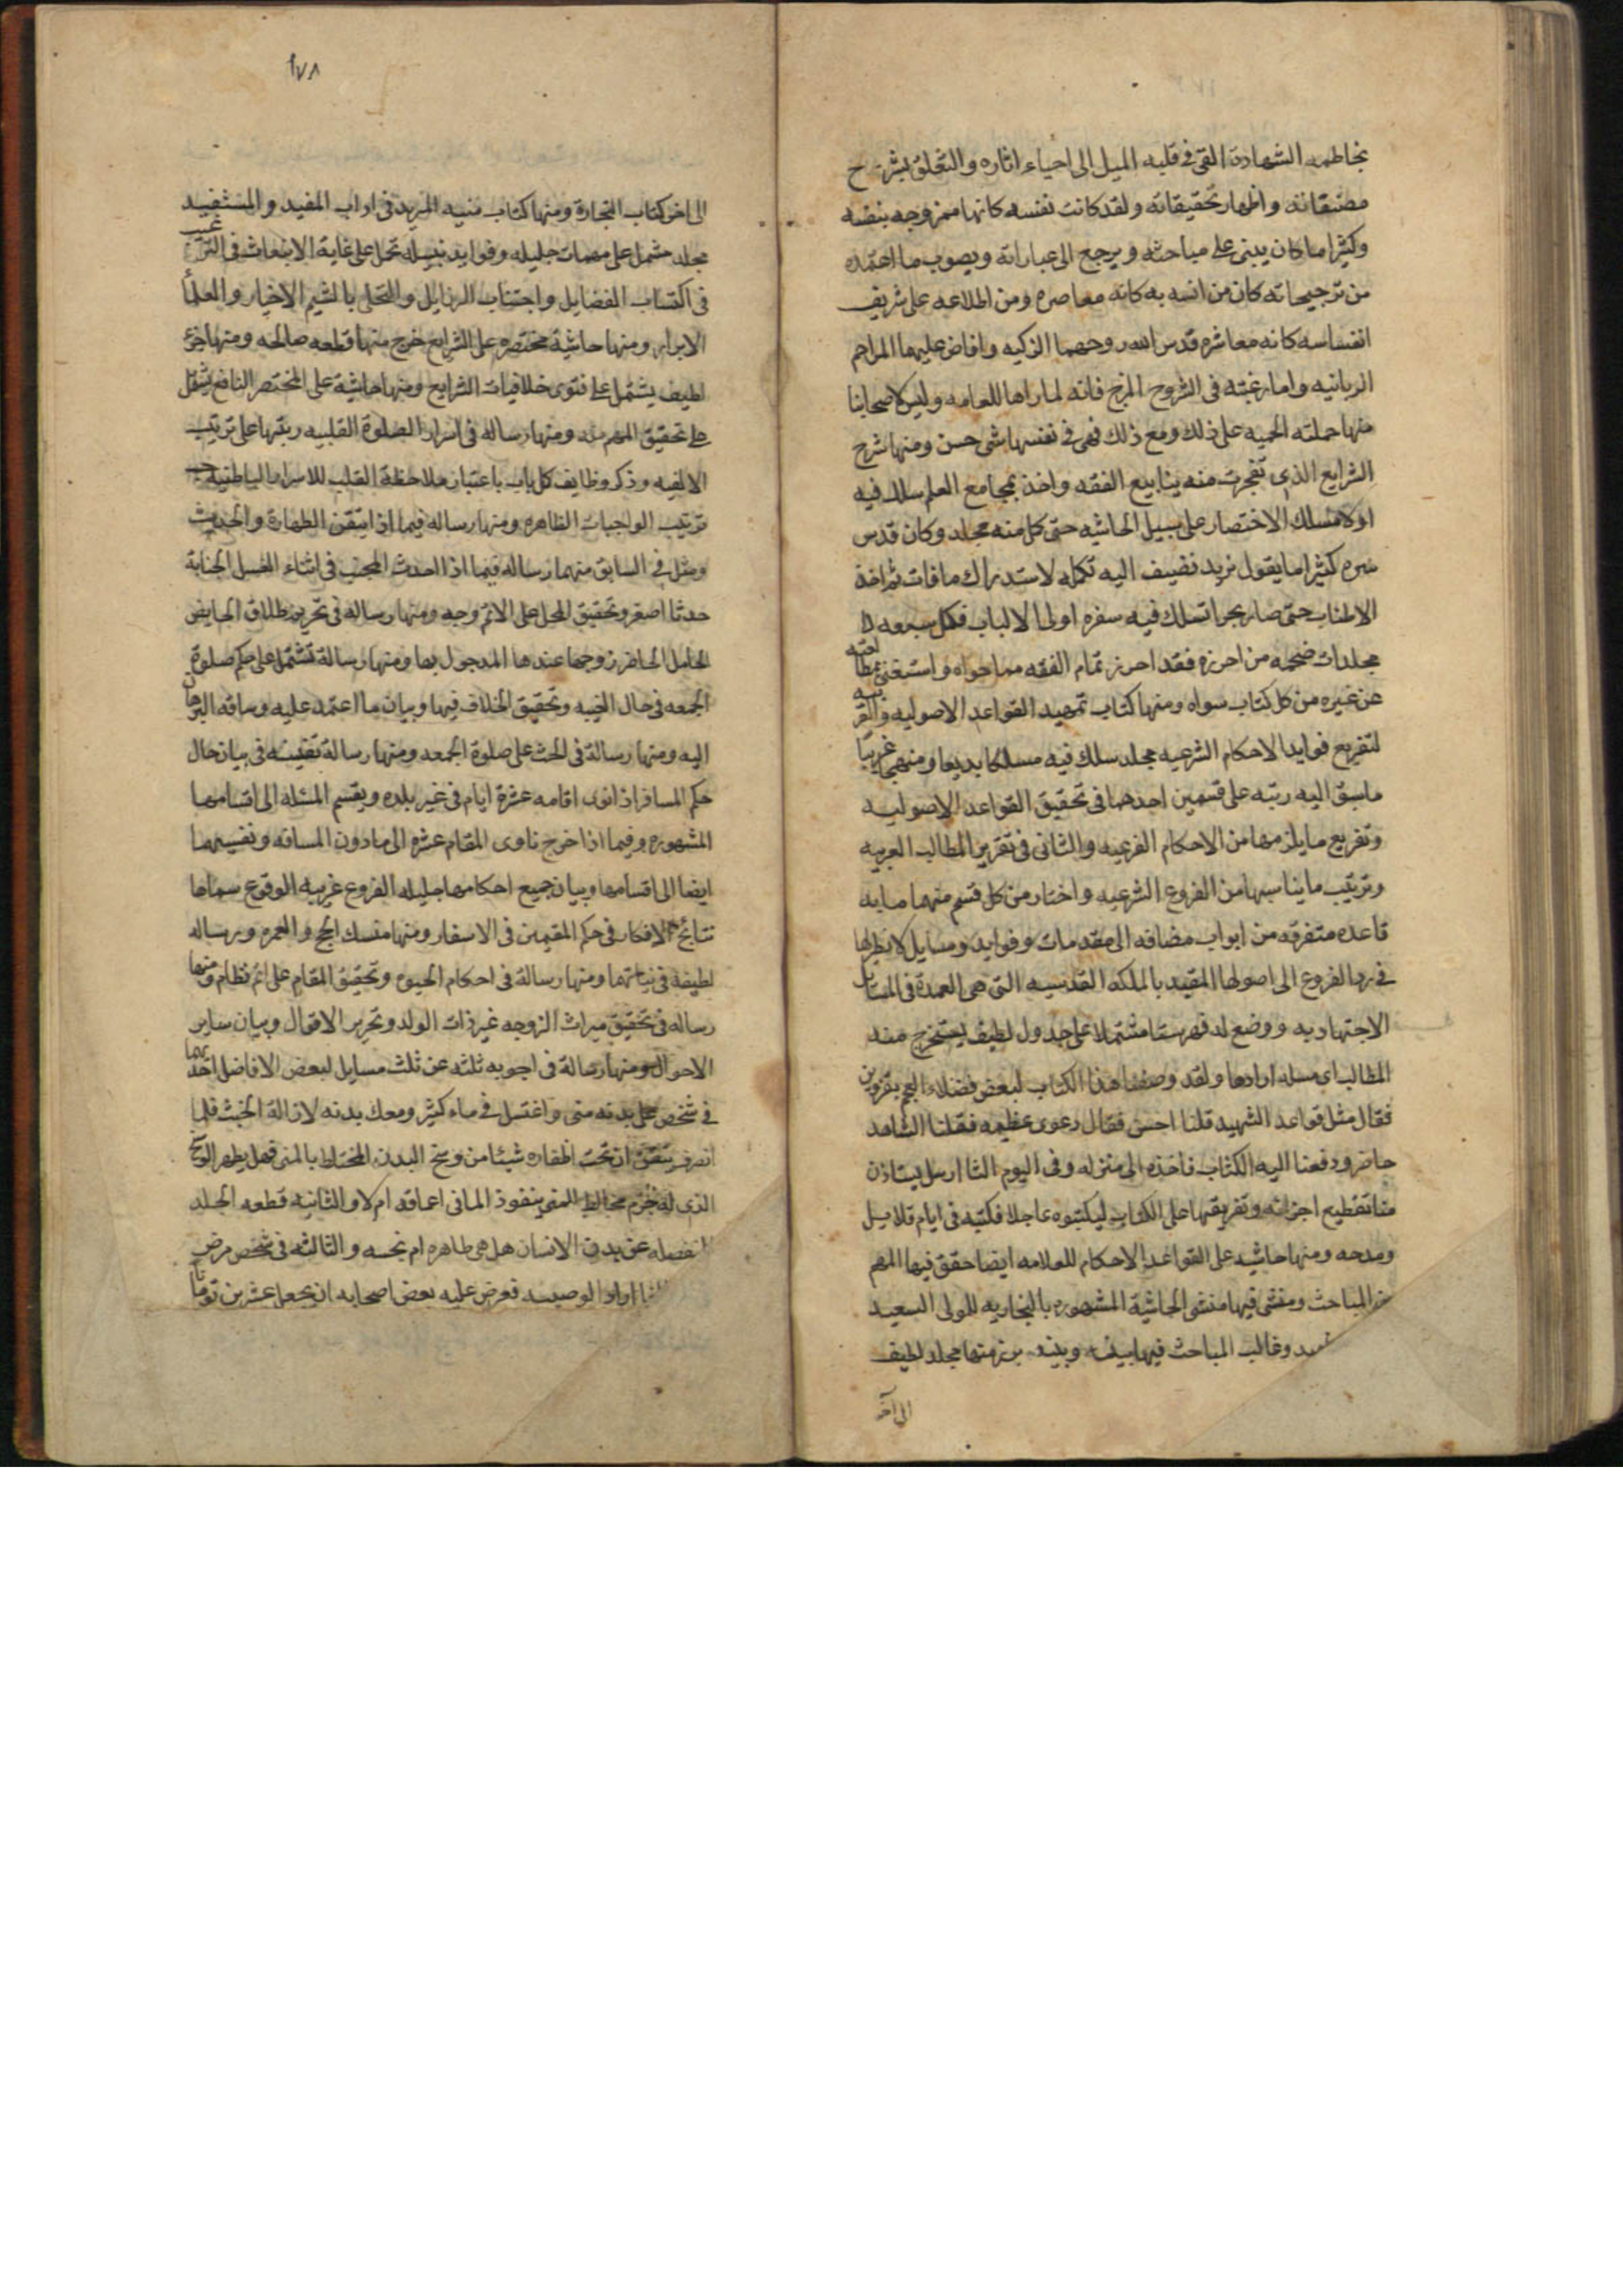 بخاطمه الشهادة القى فى قلبه الميل الى احياء اثاره والتخلق بشرح
مصنفاته واظهار تحقيقاته ولقد كانت نفسه كانها ممزوجه بنفسه
وكثيرا ما كان يبنى على مباحثه ويرجع الى عباراته ويصوب ما اعتمده
من ترجيحاته كان من انسه به كانه معاصره ومن اطلاعه على شريف
انفساسه كانه معاشره قدس الله روحهما الزكيه وافاض عليهما المراحم
الربانيه واما رغبته فى الشروح المزج فانه لما راها للعامه وليس لاصحابنا
منها حملته الحميه على ذلك ومع ذلك فهى فى نفسها شى حسن ومنها شرح
الشرايع الذى تفجرت منه ينابيع الفقه واخذ بمجامع العلم سلك فيه
اولا مسلك الاختصار على سبيل الحاشيه حتى كمل منه مجلد وكان قدس
سره كثيرا ما يقول نريد نضيف اليه تكمله لاستدراك ما فات ثم اخذ
الاطناب حتى صار بحرا تسلك فيه سفره اولى الالباب فكمل سبعه
مجلدات ضخمه من احرزه فقد احرز تمام الفقه مما حواه واستغنى بمطالعته
عن غيره من كل كتاب سواه ومنها كتاب تمهيد القواعد الاصوليه والعربيه
لتفريع فوايد الاحكام الشرعيه مجلد سلك فيه مسلكا بديعا ومنهجا غريبا
ما سبق اليه رتبه على قسمين احدهما فى تحقيق القواعد الاصوليه
وتفريع ما يلزمها من الاحكام الفرعيه والثانى فى تقرير المطالب العربيه
وترتيب ما يناسبها من الفروع الشرعيه واختار من كل قسم منهما مايه
قاعده متفرقه من ابواب مضافه الى مقدمات وفوايد ومسايل لا نظير لها
فى رد الفروع الى اصولها المقيد بالملكه القدسيه التى هى العمدة فى المسايل
الاجتهاديه ووضع له فهرستا مشتملا على جدول لطيف يستخرج منه
المطالب اى مسله ارادها ولقد وصفنا هذا الكتاب لبعض فضلاء العجم بقزوين
فقال مثل قواعد الشهيد قلنا احسن فقال دعوى عظيمه فقلنا الشاهد
حاضر ودفعنا اليه الكتاب فاخذه الى منزله وفى اليوم الثا ارسل يستاذن
منا تقطيع اجزائه وتفريقها على الكتاب ليكتبوه عاجلا فكتبه فى ايام قلايل
ومدحه ومنها حاشيه على القواعد الاحكام للعلامه ايضا حقق فيها المهم
من المباحث ومشى فيها مشى الحاشية المشهوره بالنجاريه للمولى السعيد
وغالب المباحث فيها بينه وبينه برز منها مجلد لطيف
الى آخر
١٧٨
الى اخر كتاب التجارة ومنها كتاب منيه المريد فى اداب المفيد والمستفيد
مجلد مشمل على مهمات جليله وفوايد نبيله تحمل على غاية الانبعاث فى الترغيب
فى اكتساب الفضايل واجتناب الرذايل والتحلى بالشيم الاخيار والعلما
الابرار ومنها حاشية مختصره على الشرايع خرج منها قطعه صالحه ومنها جزء
لطيف يشتمل على فتوى خلافيات الشرايع ومنها حاشية على المختصر النافع يشتمل
على تحقيق المهم منه ومنها رساله فى اسرار الصلوة القلبيه رتبها على ترتيب
الالفيه وذكر وظايف كل باب باعتبار ملاحظة القلب للاسرار الباطنيه
ترتيب الواجبات الظاهره ومنها رساله فيما اذا تيقن الطهارة والحدث
وشك فى السابق منهما رساله فيما اذا احدث المجنب فى اثناء الغسل الجنابة
حدثا اصغر وتحقيق المحل على الاتم وجه ومنها رساله فى تحريم طلاق الحايض
الحامل الحاضر زوجها عندها المدخول بها ومنها رسالة تشتمل على حكم صلوة
الجمعه فى حال الغيبه وتحقيق الخلاف فيها وبيان ما اعتمد عليه وساقه البرهان
اليه ومنها رسالة فى الحث على صلوة الجمعه ومنها رسالة نفيسه فى بيان حال
حكم المسافر اذا نوى اقامه عشرة ايام فى غير بلده ويقسم المسئله الى اقسامها
المشهوره وفيما اذا خرج ناوى المقام عشره الى مادون المسافه وتقسيمها
ايضا الى اقسامها وبيان جميع احكامها جليله الفروع غريبه الوقوع سماها
نتائج الافكار فى حكم المقيمين فى الاسفار ومنها منسك الحج والعمره ورساله
لطيفة فى نياتهما ومنها رسالة فى احكام الحبوه وتحقيق المقام على اتم نظام ومنها
رساله فى تحقيق ميراث الزوجه غير ذات الولد وتحرير الاقوال وبيان ساير
الاحوال ومنها رسالة فى اجوبه ثلثه عن ثلث مسايل لبعض الافاضل احدها
فى شخص على بدنه منى واغتسل فى ماء كثير ومعك بدنه لازالة الخبث فلما
انصرف تيقن ان تحت اظفاره شيئا من وسخ البدن المختلط بالمنى فهل يطهر الوسخ
الذى له جرم مخالط للمنى بنفوذ الما فى اعماقه ام لا والثانيه قطعه الجلد
المنفصله عن بدن الانسان هل هى طاهره ام نجسه والثالثه فى شخص مرض
اراد الوصيه فعرض عليه بعض اصحابه ان يجعل عشرين توما